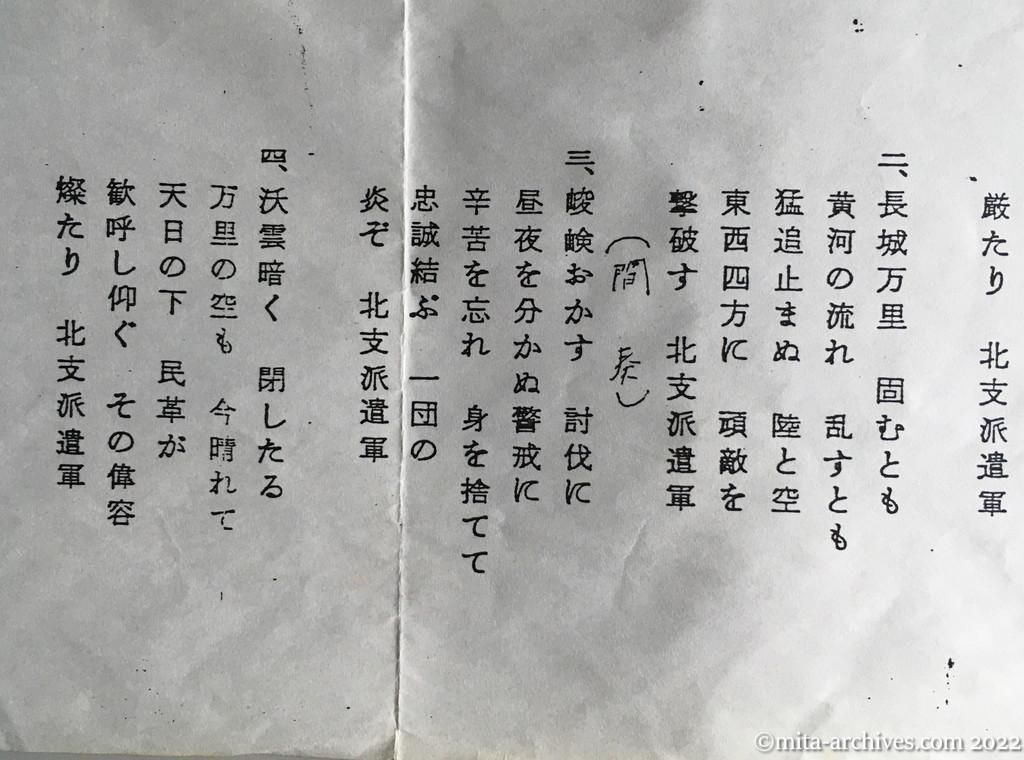 厳たり　北支派遣軍
二、長城万里　固むとも
黄河の流れ　乱すとも
猛追止まぬ　陸と空
東西四方に　頑敵を
撃破す　北支派遣軍
（間　奏）
三、峻険おかす　討伐に
昼夜を分かぬ警戒に
辛苦を忘れ　身を捨てて
忠誠結ぶ　一団の
炎ぞ　北支派遣軍
四、沃雲暗く　閉したる
万里の空も　今晴れて
天日の下　民革が
歓呼し仰ぐ　その偉容
燦たり　北支派遣軍
©mita-archives.com 2022